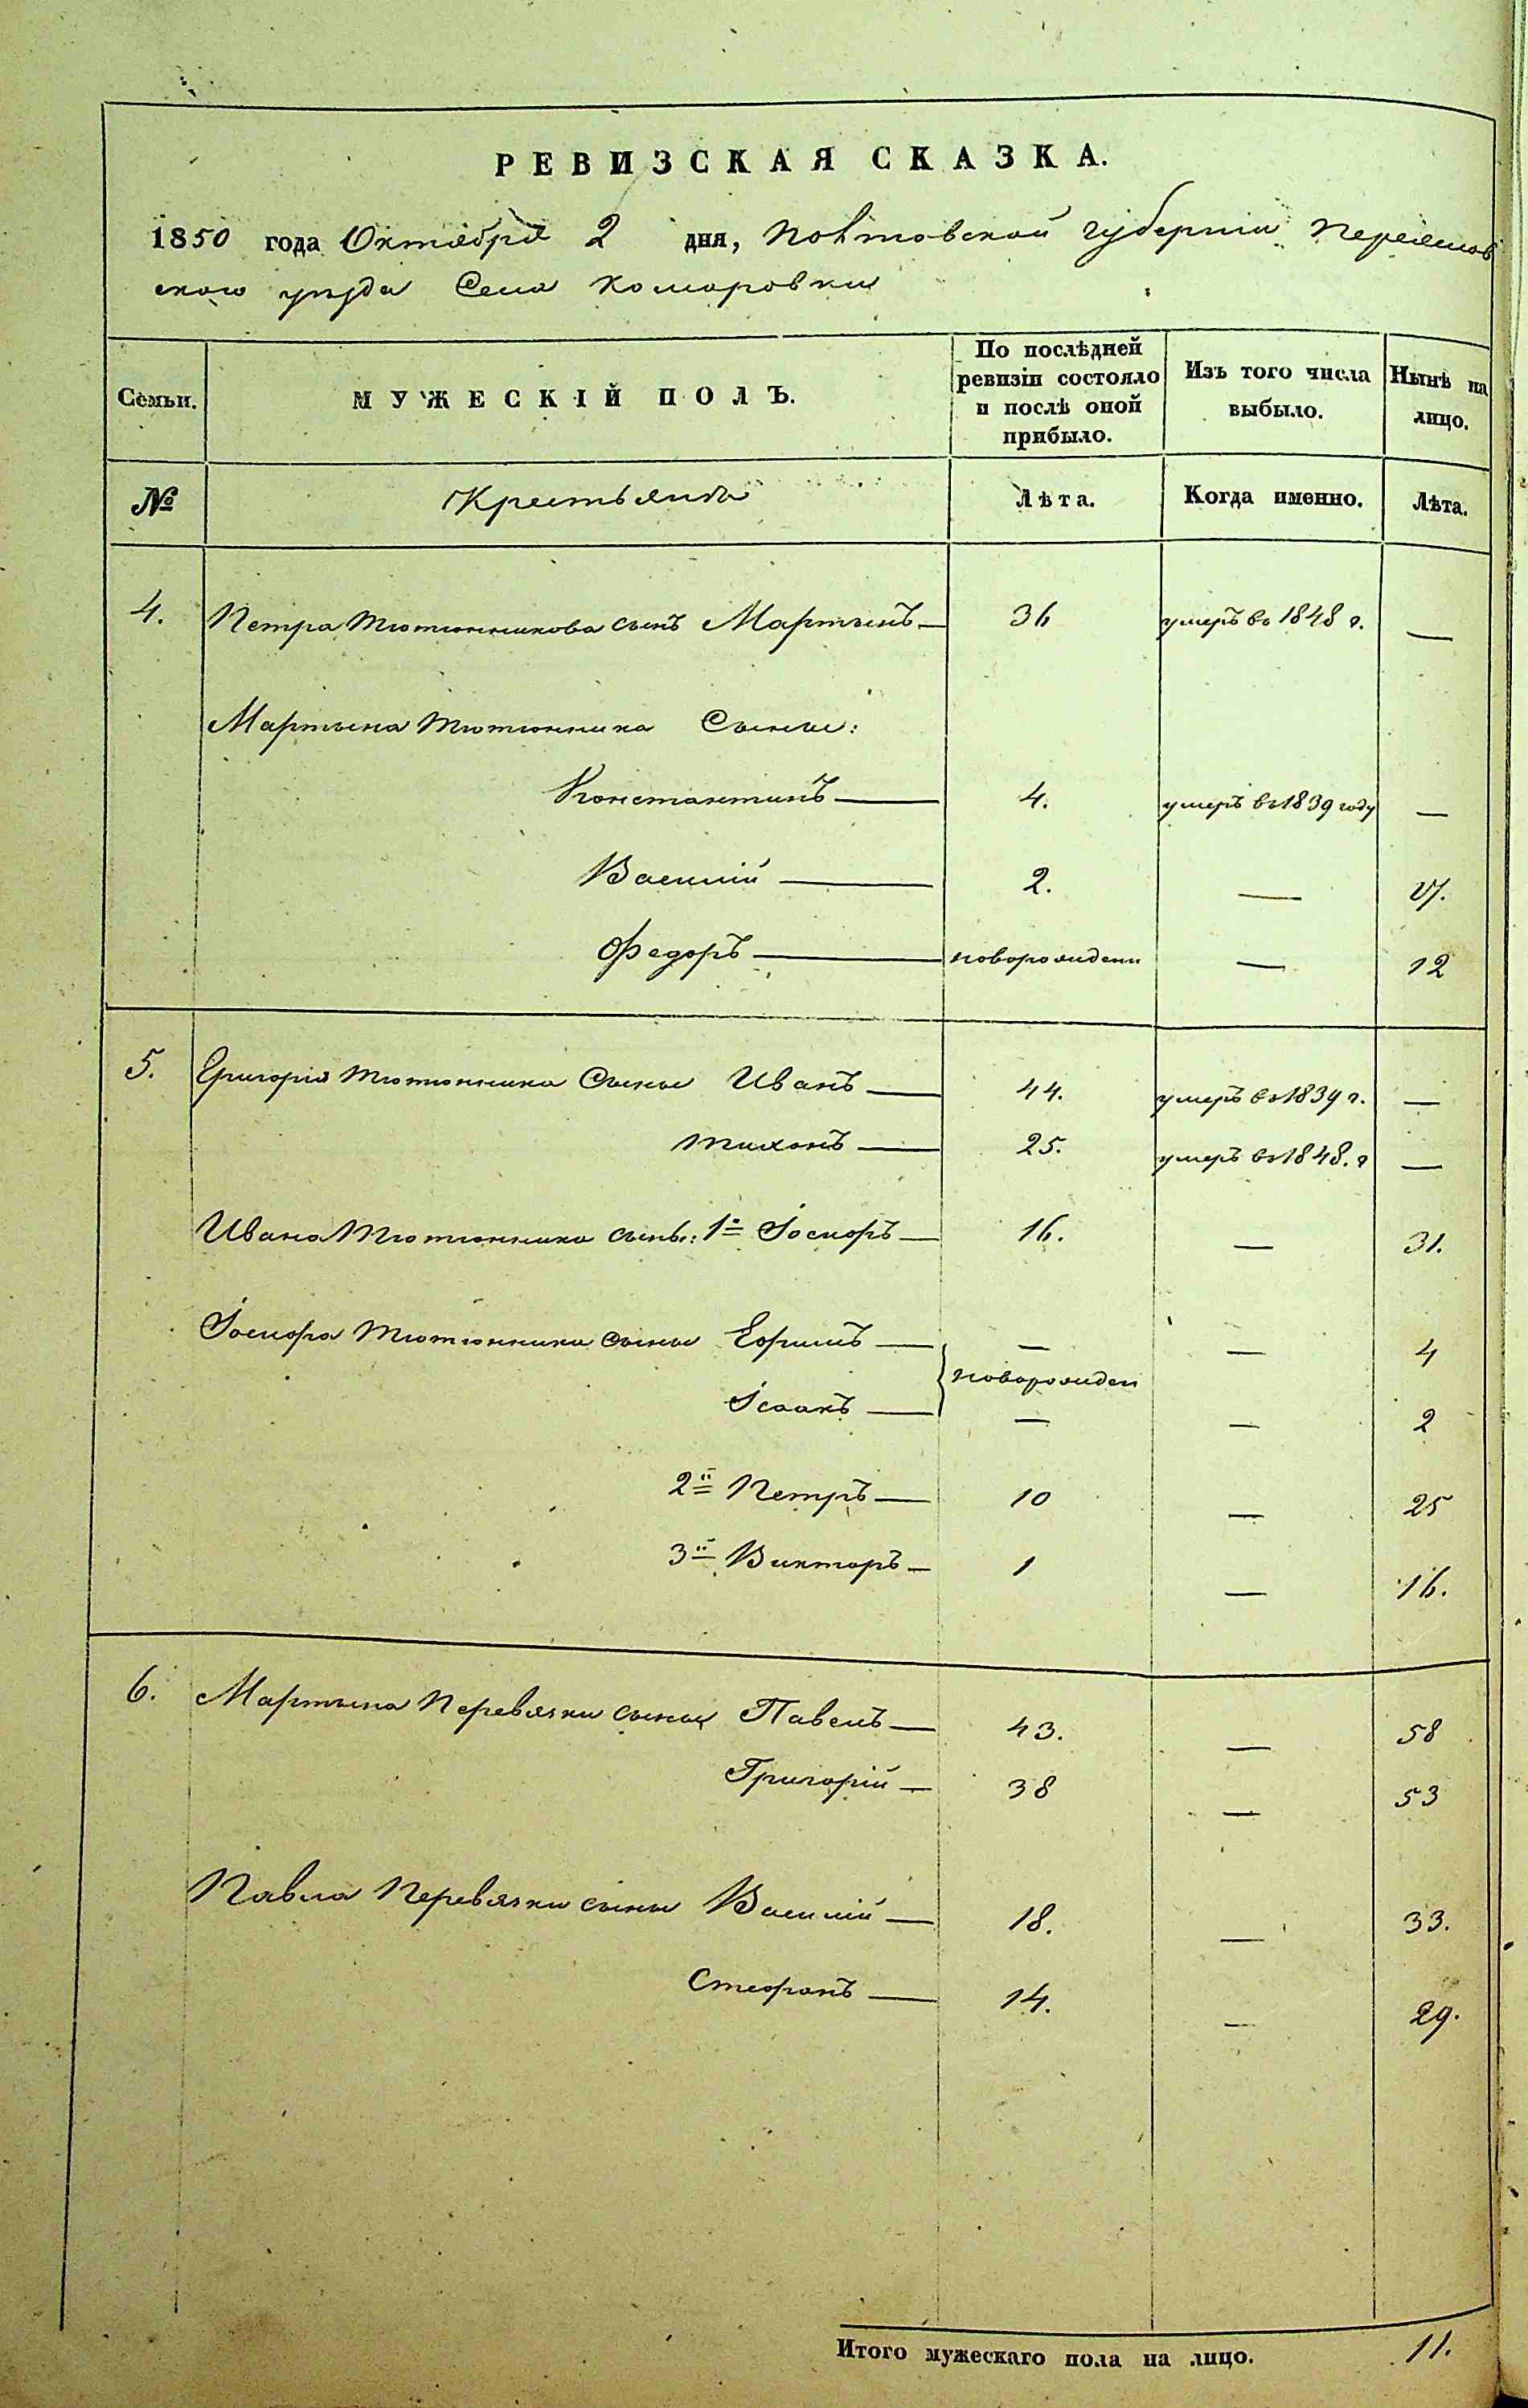 РЕВИЗСКАЯ СКАЗКА.
1850 года Октября 2 дня, Полтавской губернии Переяслов
ского уезда Села Комаровки
Семьи. МУЖЕСКІЙ ПОЛЪ. По послѣдней ревизіи состояло и послѣ оной прибыло. Изъ того числа выбыло. Нынѣ на лицо.
№ Крестьянъ Лѣта. Когда именно. Лѣта.
4. Петра Тютюнникова сынъ Мартынъ — 36 умеръ въ 1848 г. —
Мартына Тютюнника Сыны:
Константинъ — 4. умеръ въ 1839 году —
Василій — 2. — 17.
Федоръ — новорожденн — 12
5. Григорія Тютюнника Сыны Иванъ — 44. умеръ въ 1839 г. —
Тихонъ — 25. умеръ въ 1848. г —
Ивана Тютюнника сыны: 1й Іосифъ — 16. — 31.
Іосифа Тютюнника сыны Ефимъ — — — 4
новорожден
Ісаакъ — — — 2
2й Петръ — 10 — 25
3й Викторъ — 1 — 16.
6. Мартына Перевязки сыны Павелъ — 43. — 58
Григорій — 38 — 53
Павла Перевязки сыны Василій — 18. — 33.
Стефанъ — 14. — 29.
Итого мужескаго пола на лицо. 11.